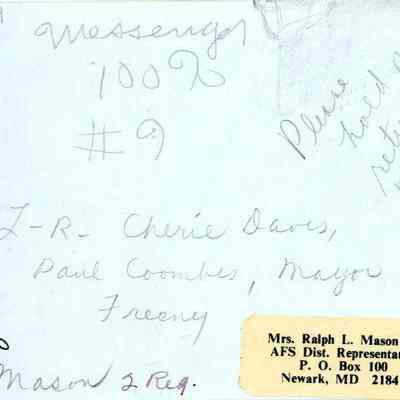 Messenger
100%
#9
Please
hold
L-R- Cherie Davis,
Paul Coombes, Mayor
Freeny
Mason 2 Reg.
Mrs. Ralph L. Mason
AFS Dist. Representa
P. O. Box 100
Newark, MD 2184